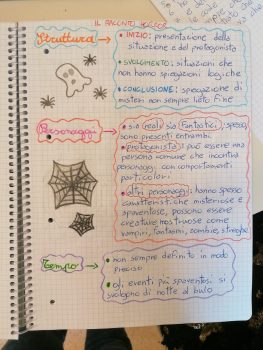 IL RACCONTO HORROR
Struttura
• INIZIO: presentazione della
situazione e del protagonista
• SVOLGIMENTO: situazioni che
non hanno spiegazioni logiche
• CONCLUSIONE: spiegazione di
misteri non sempre lieto fine
Personaggi
• sia reali sia fantastici: spesso
sono presenti entrambi.
• protagonista: può essere una
persona comune che incontra
personaggi con comportamenti
particolari
• altri personaggi: hanno spesso
caratteristiche misteriose e
spaventose, possono essere
creature mostruose come
vampiri, fantasmi, zombie, streghe
Tempo
• non sempre definito in modo
preciso
• gli eventi più spaventosi si
svolgono di notte al buio